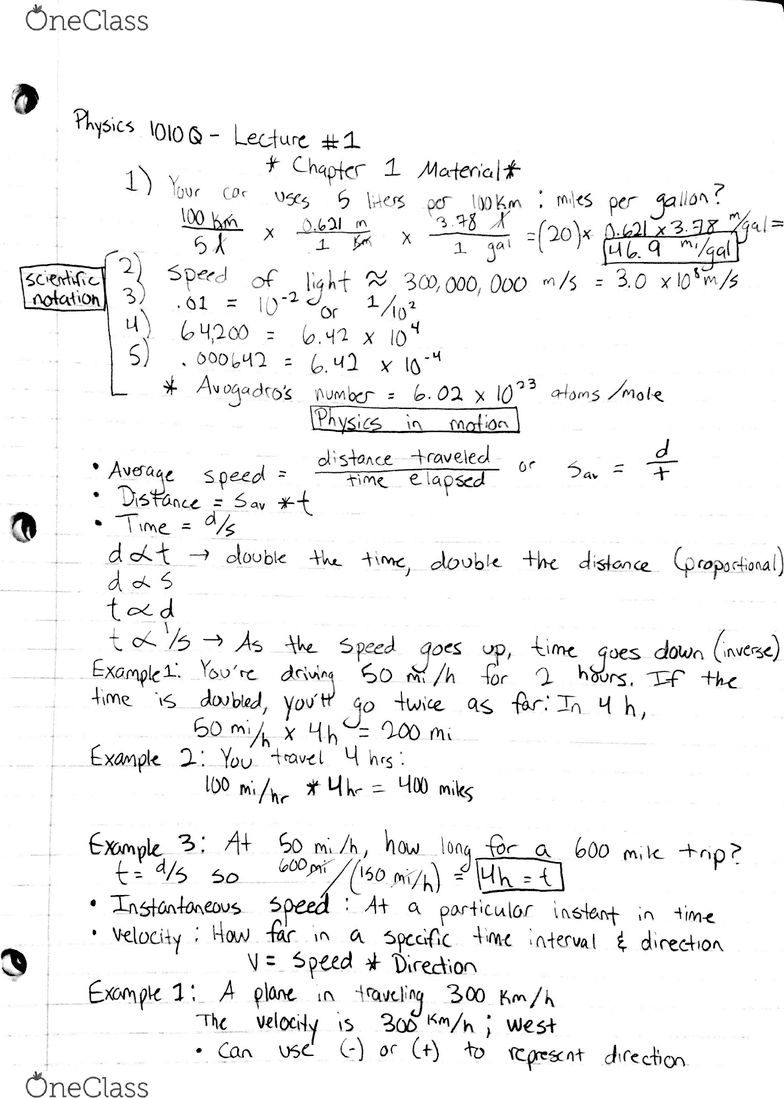 OneClass
Physics 1010Q - Lecture #1
* Chapter 1 Material *
1) Your car uses 5 liters per 100 km : miles per gallon?
100 km / 5 l × 0.621 m / 1 km × 3.78 l / 1 gal = (20) × 0.621 × 3.78 m/gal =
46.9 mi/gal
scientific notation
2) speed of light ≈ 300,000,000 m/s = 3.0 × 10⁸ m/s
3) .01 = 10⁻² or 1/10²
4) 64,200 = 6.42 × 10⁴
5) .000642 = 6.42 × 10⁻⁴
* Avogadro's number = 6.02 × 10²³ atoms/mole
Physics in motion
• Average speed = distance traveled / time elapsed or Sav = d/t
• Distance = Sav * t
• Time = d/s
d ∝ t → double the time, double the distance (proportional)
d ∝ s
t ∝ d
t ∝ 1/s → As the speed goes up, time goes down (inverse)
Example 1: You're driving 50 mi/h for 2 hours. If the
time is doubled, you'll go twice as far: In 4 h,
50 mi/h × 4h = 200 mi
Example 2: You travel 4 hrs:
100 mi/hr * 4hr = 400 miles
Example 3: At 50 mi/h, how long for a 600 mile trip?
t = d/s so 600 mi/(150 mi/h) = 4h = t
• Instantaneous speed : At a particular instant in time
• velocity : How far in a specific time interval & direction
V = Speed * Direction
Example 1: A plane in traveling 300 km/h
The velocity is 300 km/h ; west
• Can use (-) or (+) to represent direction
OneClass